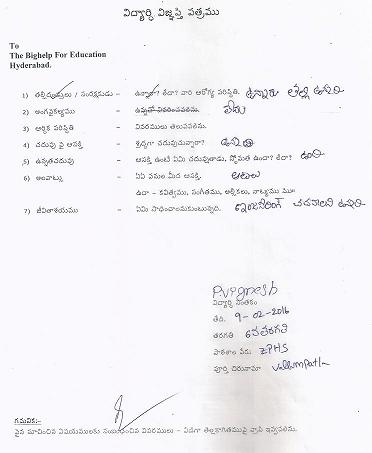 విద్యార్థి విజ్ఞప్తి పత్రము
To
The Bighelp For Education
Hyderabad.
1) తల్లిదండ్రులు / సంరక్షకుడు – ఉన్నారా? లేదా? వారి ఆరోగ్య పరిస్థితి. ఉన్నారు తల్లి
2) అంగవైకల్యము – ఉన్నచో వివరించవలెను. లేదు
3) ఆర్థిక పరిస్థితి – వివరములు తెలుపవలెను.
4) చదువు పై ఆసక్తి – శ్రద్ధగా చదువుచున్నారా?
5) ఉన్నతచదువు – ఆసక్తి ఉంటే ఏమి చదువుతాడు, స్తోమత ఉందా? లేదా? ఉంది
6) అలవాట్లు – ఏఏ పనుల మీద ఆసక్తి. ఆటలు
ఉదా - కవిత్వము, సంగీతము, అల్లికలు, నాట్యము మ॥
7) జీవితాశయము – ఏమి సాధించాలనుకుంటున్నది. ఇంజనీరింగ్ చదవాలని ఉంది
P.vignesh
విద్యార్థి సంతకం
తేది. 9-02-2016
తరగతి 6వతరగతి
పాఠశాల పేరు ZPHS
పూర్తి చిరునామా vallampatla
గమనిక:-
పైన సూచించిన విషయములకు సంబంధించిన వివరములు - విడిగా తెల్లకాగితముపై వ్రాసి ఇవ్వవలెను.